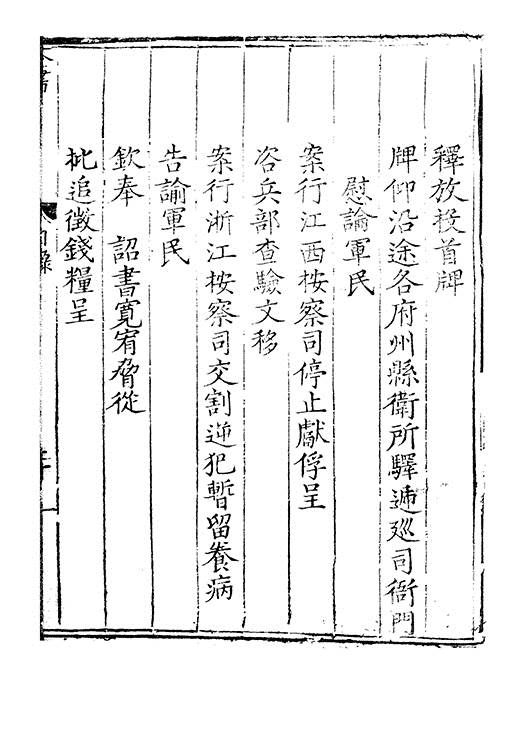 釋放投首牌
牌仰沿途各府州縣衛所驛遞廵司衙門
慰諭軍民
案行江西按察司停止獻俘呈
咨兵部查驗文移
案行浙江按察司交割逆犯暫留養病
告諭軍民
欽奉 詔書寬宥脅從
批追徵錢糧呈
目錄